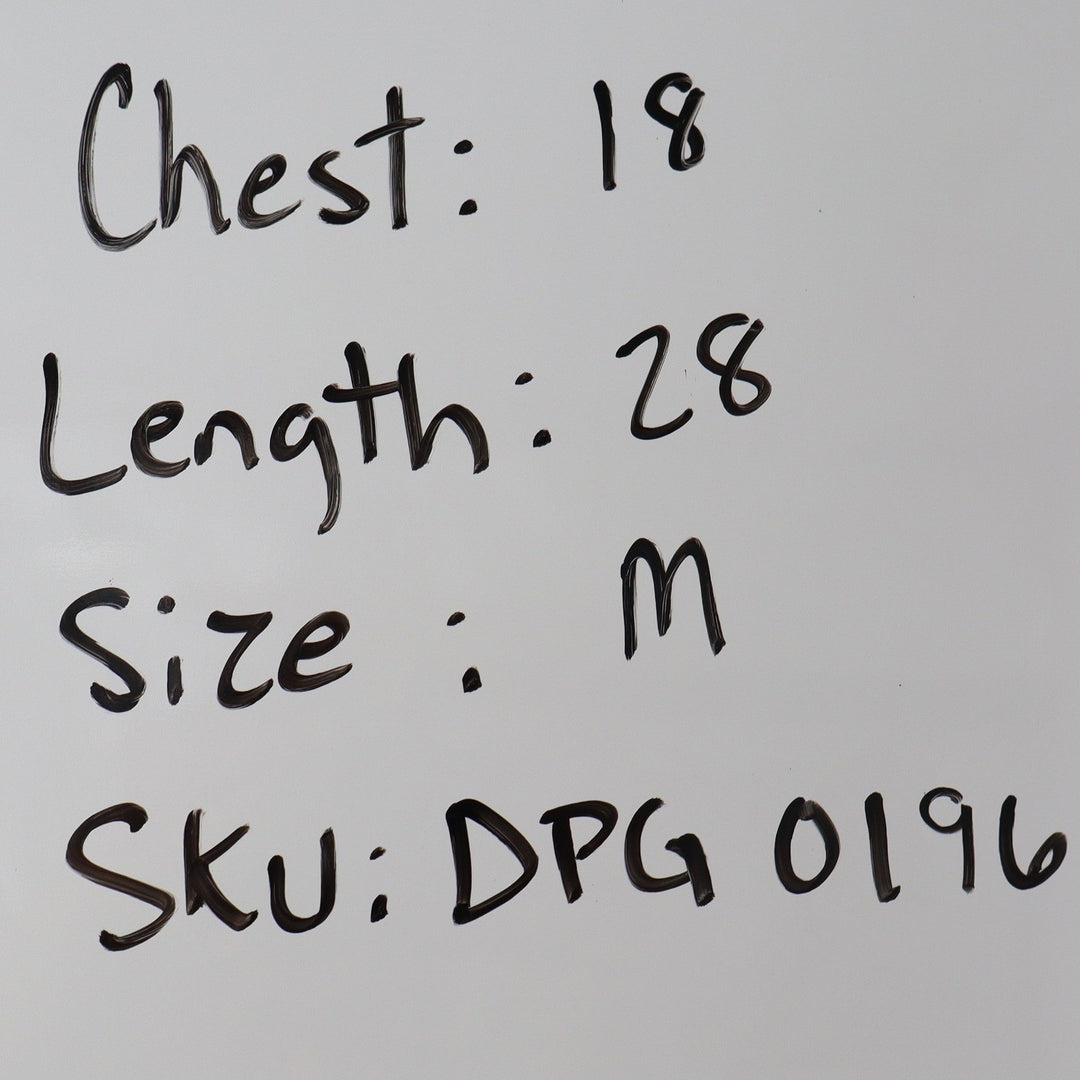 Chest: 18
Length: 28
Size: M
SKU: DPG 0196